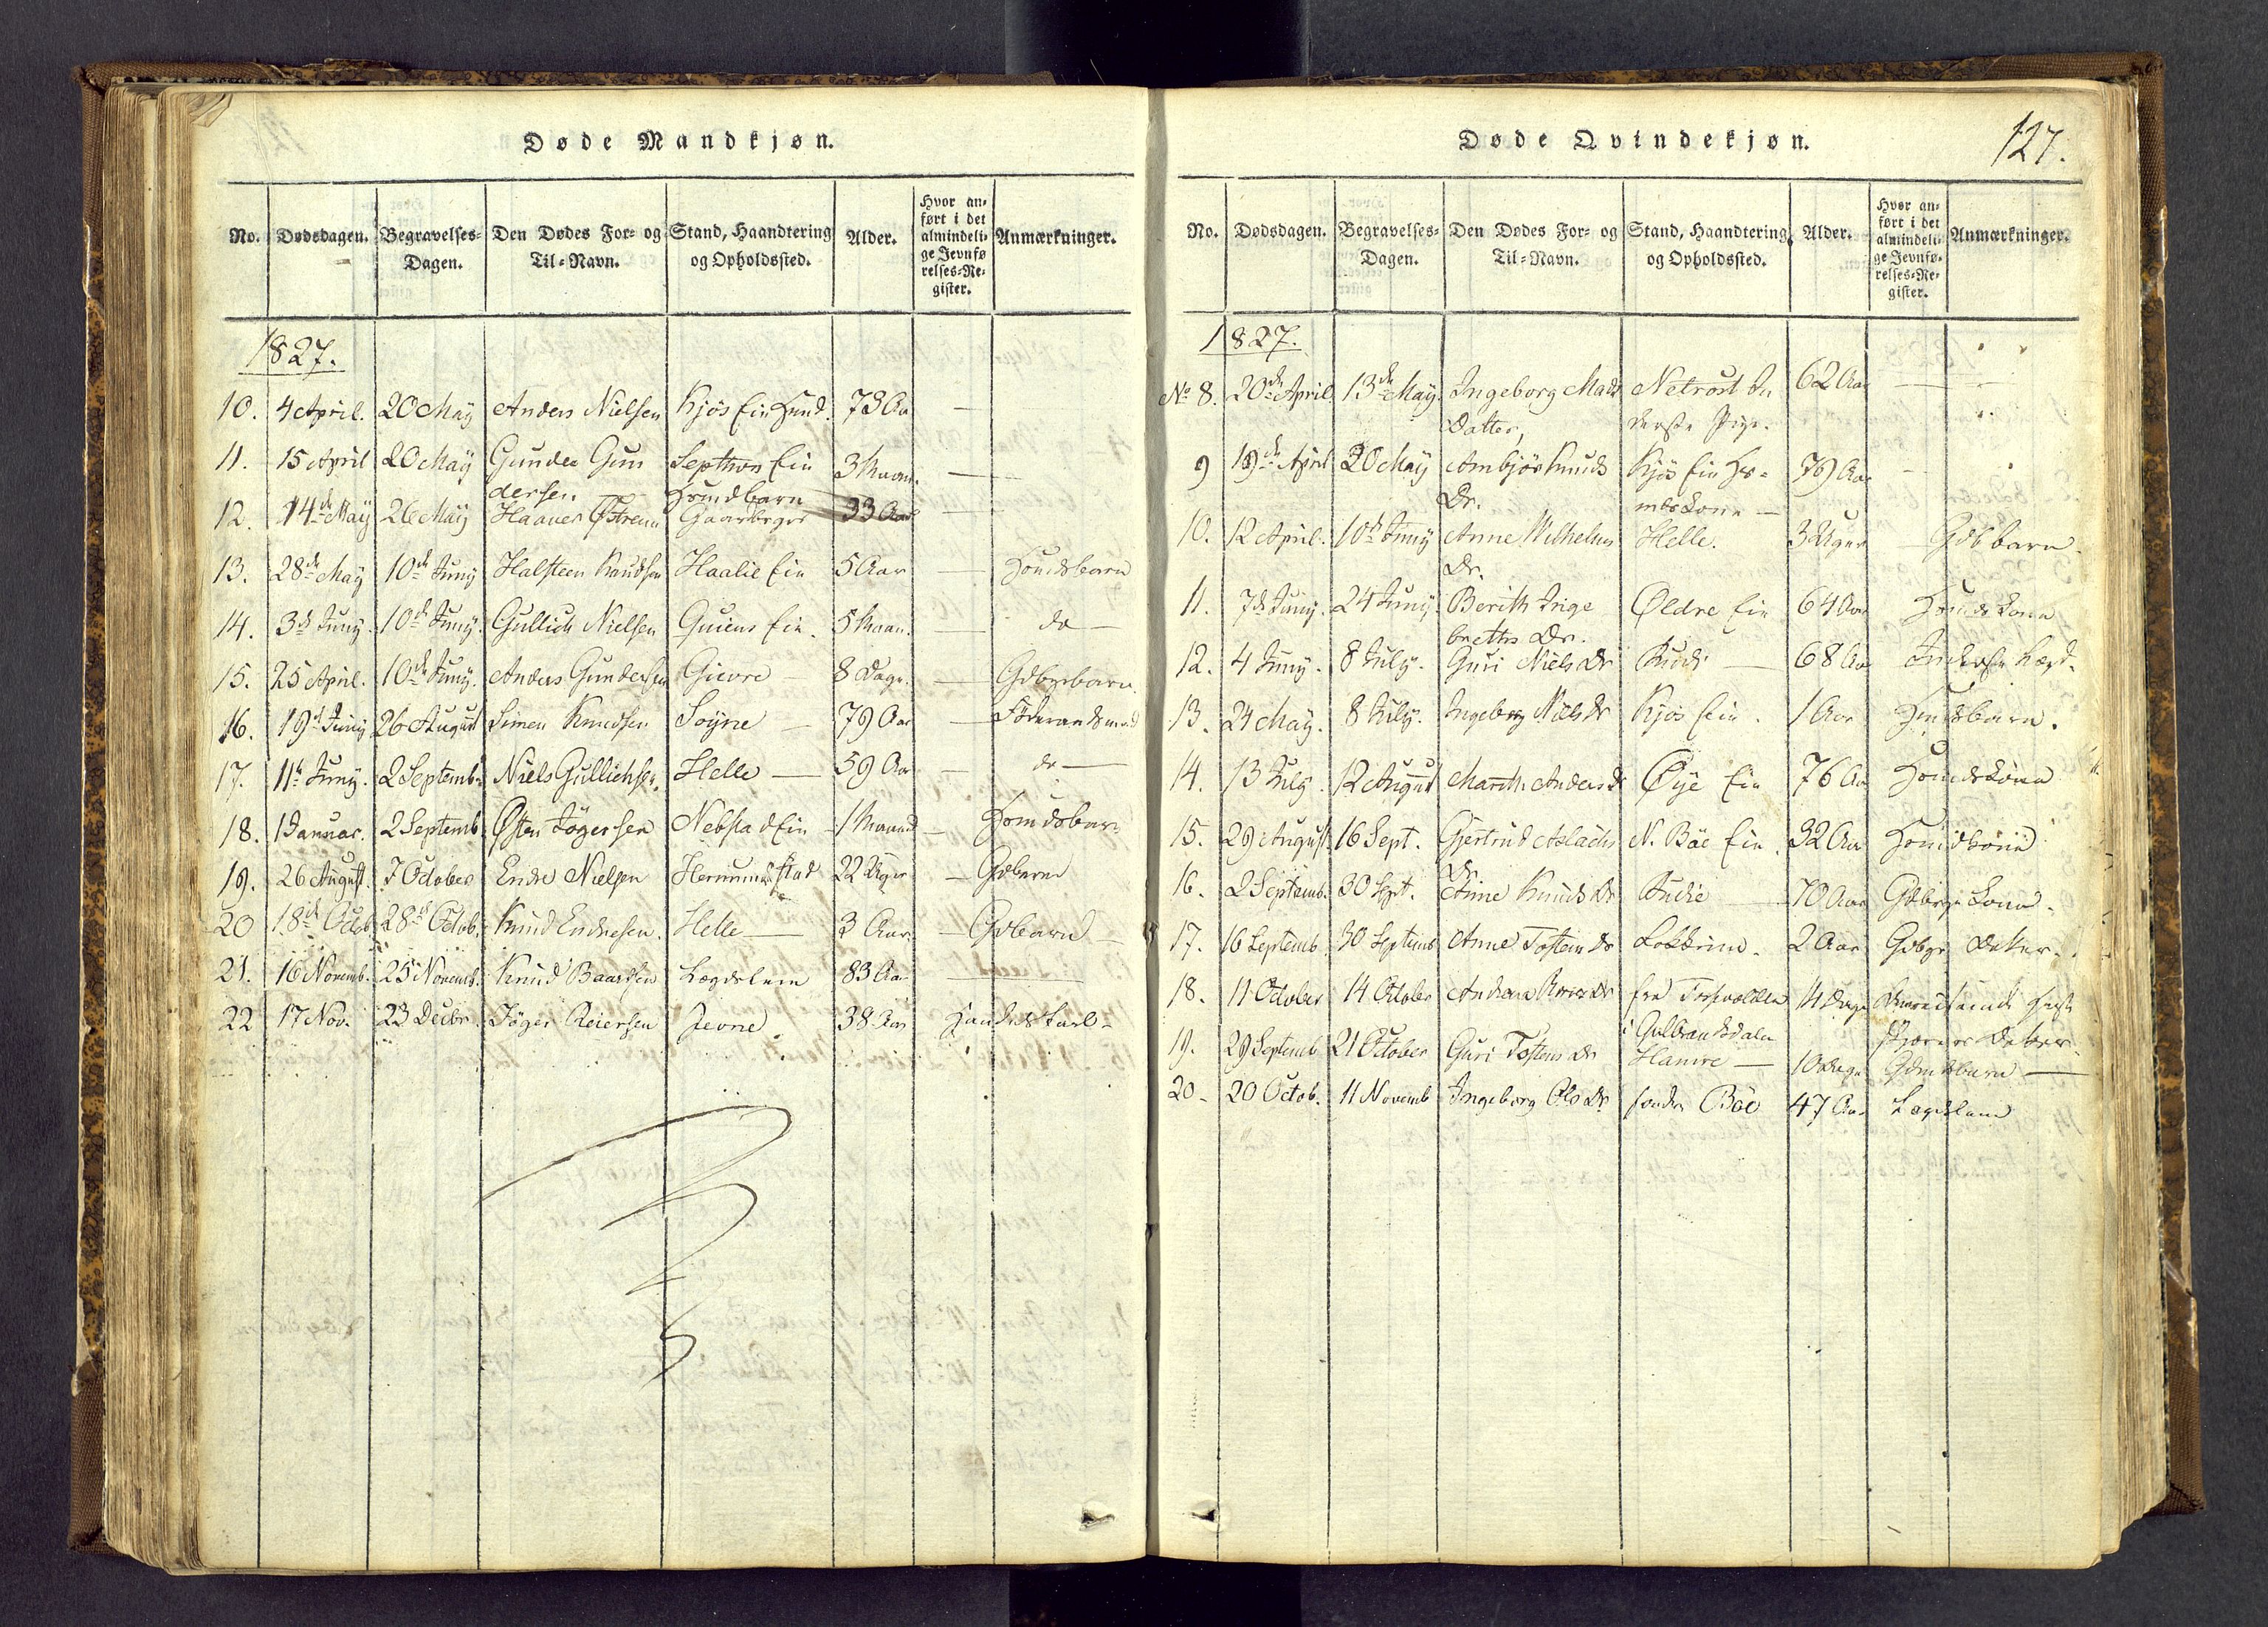 Døde Mandkjøn.
No. Dødsdagen. Begravelses-Dagen. Den Dødes For- og Til-Navn. Stand, Haandtering og Opholdssted. Alder. Hvor anført i det almindelige Jevnførelses-Register. Anmærkninger.
1827.
10. 4 April. 20 May Anders Nielsen Kjös Ein 73 Aar —
11. 15 April 20 May Gunder Gun Ein 3 Maan. —
dersen
12. 14de May 26 May Gaarbryger 33 Aar —
13. 28de May 10de Juny Halsteen Knudsen Haalie Ein 5 Aar — Hmdsbarn
14. 3d Juny 10de Juny. Gullich Nielsen Ein. 5 Maan. — do —
15. 25 April. 10de Juny. Anders Gundersen Gievre 8 Dage. — Gdbrbarn.
16. 19d Juny 26 August Simen Knudsen Soyne 79 Aar — Föderaadsmand
17. 11te Juny. 2 Septembr Niels Gullichsen. Helle — 59 Aar — do —
18. 1 Januar. 2 Septemb. Østen Jögersen Nebstad Ein 1 Maaned — Hmdsbarn
19. 26 August. 7 October Endre Nielsen 22 Uger — Gdbarn
20 18de Octob. 28de Octob. Knud Endresen. Helle — 3 Aar — Gdbarn —
21. 16 Novemb. 25 Novemb. Knud Baardsen Lægdslem 83 Aar —
22 17 Nov. 23 Decbr. Jöger Reiersen Jevne 38 Aar
Døde Qvindekjøn. 127.
No. Dødsdagen. Begravelses-Dagen. Den Dødes For- og Til-Navn. Stand, Haandtering og Opholdssted. Alder. Hvor anført i det almindelige Jevnførelses-Register. Anmærkninger.
1827.
No 8. 20de April 13de May. Ingeborg Mads 62 Aar —
Datter, Pige.
9 19de April 20 May Ambjör Knuds Kjös Ein 79 Aar —
Dr.
10. 12 April. 10de Juny Anne Wilhelms Helle. 3 Uger — Gdbbarn.
Dr.
11. 7de Juny. 24 Juny. Berith Inge Øldre Ein 64 Aar
breths Dr.
12. 4 Juny. 8 July. Guri Niels Dr Rudi — 68 Aar
13. 24 May. 8 July. Ingeborg Niels Dr Kjös Ein. 1 Aar Hmdsbarn.
14. 13 July 12 August Marith Anders Dr Øye Ein 76 Aar Hmdskone
15. 29 August 16 Sept. Gjertrud Aslachs N. Böe Ein. 32 Aar Hmdskone
Dr
16. 2 Septemb. 30 Sept. Anne Knuds Dr 70 Aar Gdbrs Kone.
17. 16 Septemb. 30 Septemb Anne Tosten Dr 2 Aar Gdbr Datter.
18. 11 October 14 October fra 14 Dage
i Gulbrandsdalen Datter.
19. 29 Septemb 21 October Guri Tostens Dr Hamre — 10 Dage Gdmdsbarn —
20 - 20 Octob. 11 Novemb Ingeborg Ols Dr søndre Böe 47 Aar Lægdslem